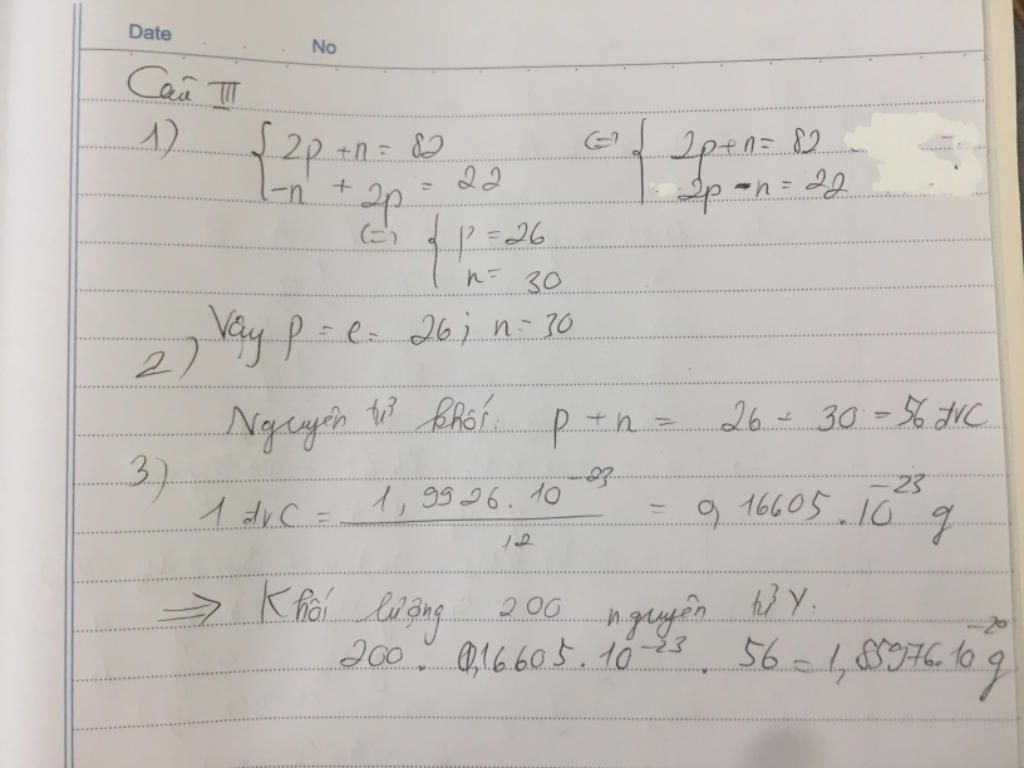 Date
No
Câu III
1) { 2p + n = 82 (=) { 2p + n = 82
-n + 2p = 22 2p - n = 22
(=) { p = 26
n = 30
Vậy p = e = 26; n = 30
2)
Nguyên tử khối: p + n = 26 + 30 = 56 đvC
3)
1 đvC = 1,9926.10^-23 / 12 = 0,16605.10^-23 g
=> Khối lượng 200 nguyên tử Y:
200 . 0,16605.10^-23 . 56 = 1,85976.10^-20 g